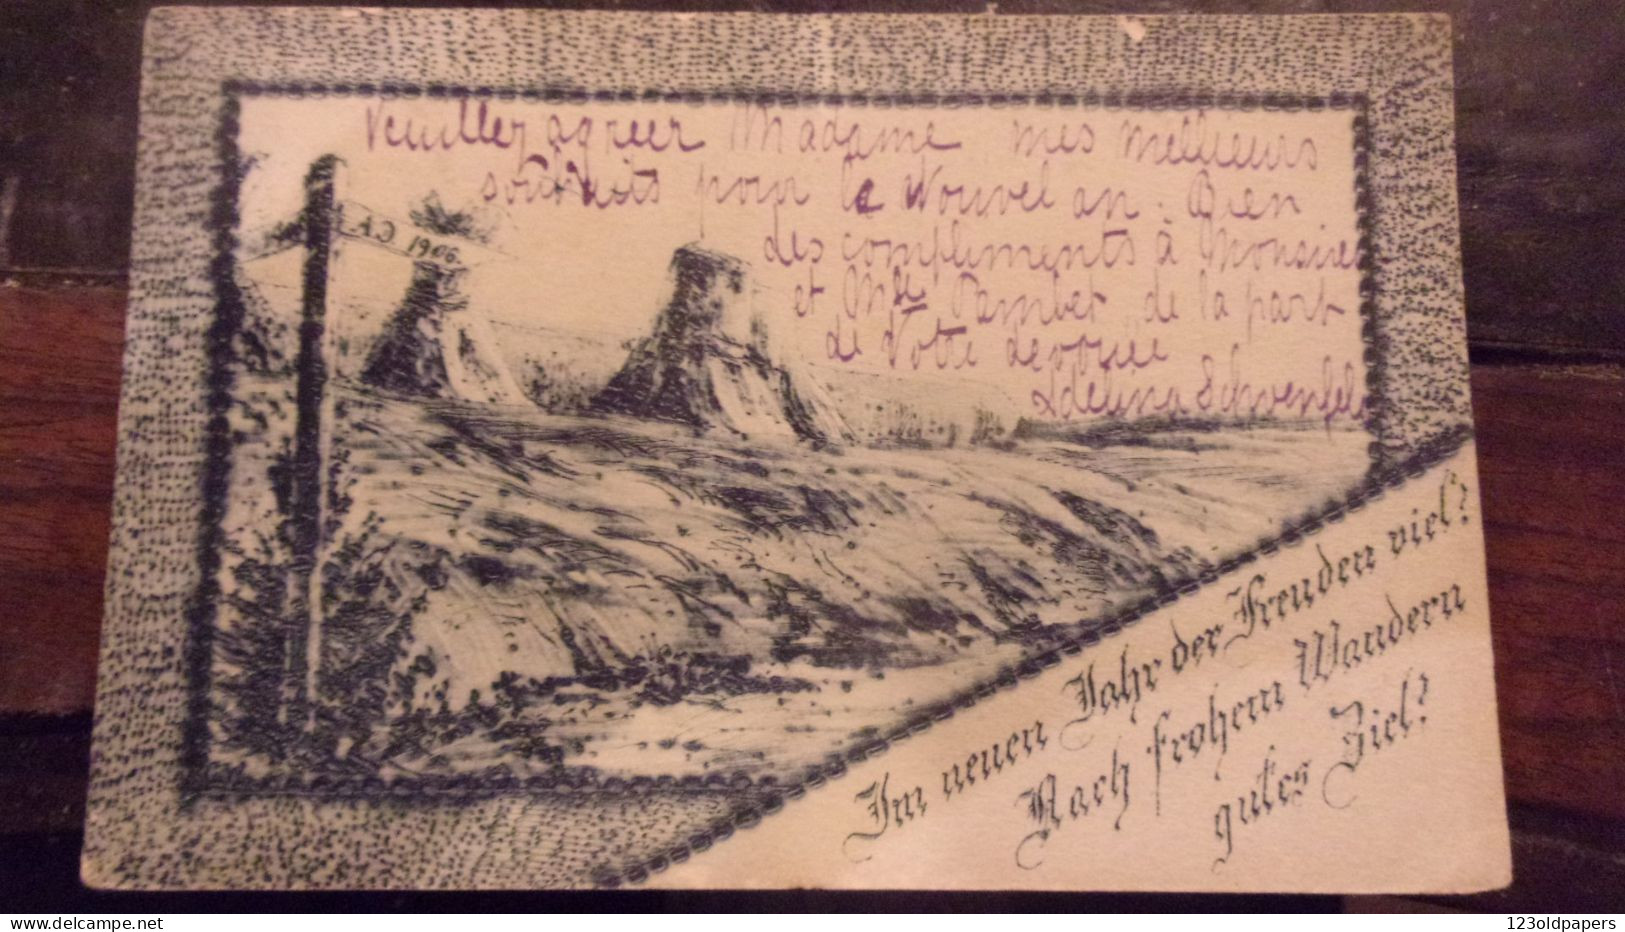 Veuiller agréer Madame mes meilleurs
souhaits pour le Nouvel an. Bien
des compliments à Monsieur
et Mlle Pambet de la part
de Votre dévouée
Adelina Schwenfele
A.D. 1906.
Im neuen Jahr der Freuden viel?
Nach frohem Wandern
gutes Ziel?
123oldpapers